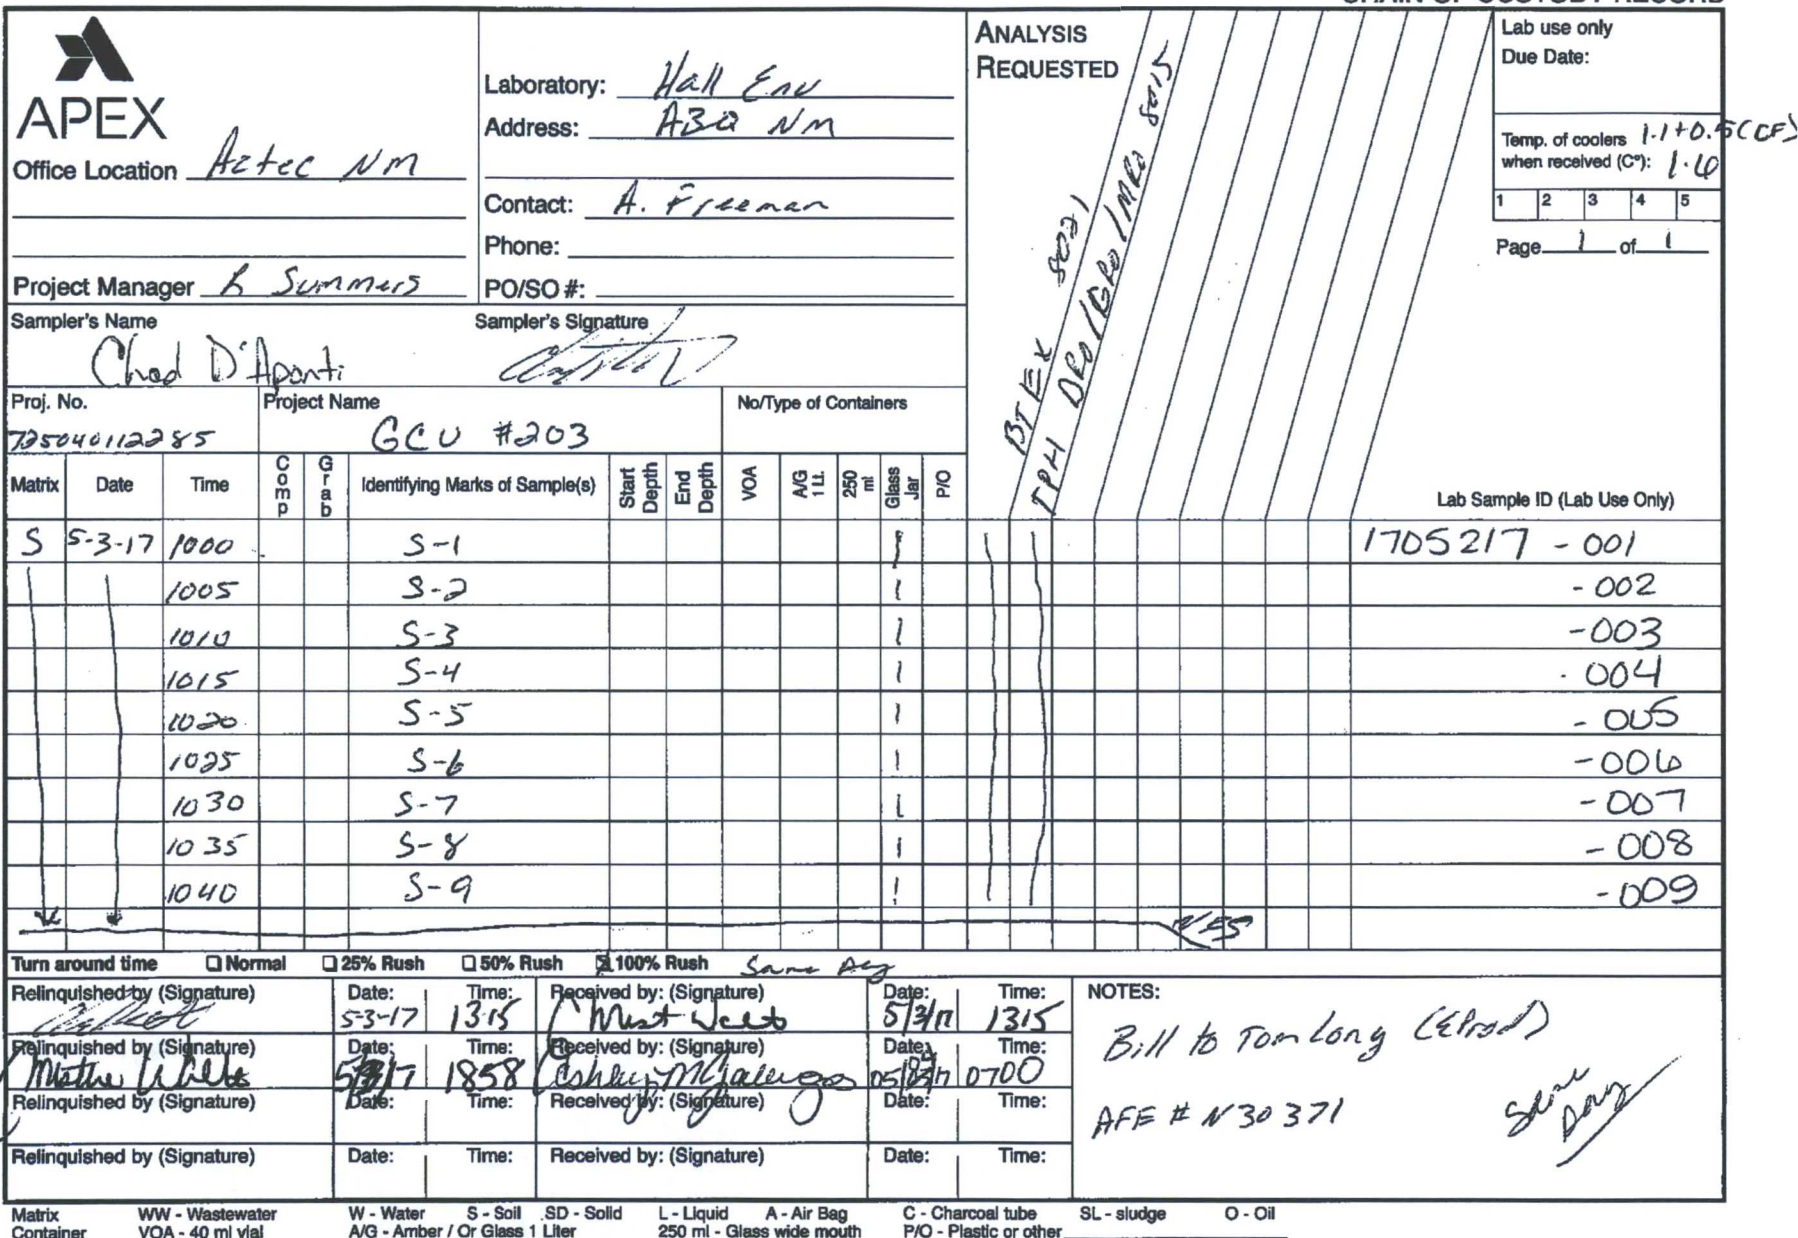 CHAIN OF CUSTODY RECORD
APEX
Office Location Aztec NM
Project Manager R Summers
Laboratory: Hall Env
Address: ABQ NM
Contact: A. Freeman
Phone:
PO/SO #:
ANALYSIS
REQUESTED
BTEX 8021
TPH DRO/GRO/MRO 8015
Lab use only
Due Date:
Temp. of coolers 1.1+0.5(CF)
when received (C°): 1.6
1 2 3 4 5
Page 1 of 1
Sampler's Name
Chad D'Aponti
Sampler's Signature
Proj. No.
725040112285
Project Name
GCU #203
No/Type of Containers
Matrix Date Time Comp Grab Identifying Marks of Sample(s) Start Depth End Depth VOA A/G 1 Lt. 250 ml Glass Jar P/O Lab Sample ID (Lab Use Only)
S 5-3-17 1000 S-1 1 1705217 -001
1005 S-2 1 -002
1010 S-3 1 -003
1015 S-4 1 -004
1020 S-5 1 -005
1025 S-6 1 -006
1030 S-7 1 -007
1035 S-8 1 -008
1040 S-9 1 -009
Turn around time Normal 25% Rush 50% Rush 100% Rush Same Day
Relinquished by (Signature) Date: Time: Received by: (Signature) Date: Time:
5-3-17 1315 5/3/17 1315
Relinquished by (Signature) Date: Time: Received by: (Signature) Date: Time:
1858 0700
Relinquished by (Signature) Date: Time: Received by: (Signature) Date: Time:
Relinquished by (Signature) Date: Time: Received by: (Signature) Date: Time:
NOTES:
Bill to Tom Long (EProd)
AFE # N30371
Same
Day
Matrix WW - Wastewater W - Water S - Soil SD - Solid L - Liquid A - Air Bag C - Charcoal tube SL - sludge O - Oil
Container VOA - 40 ml vial A/G - Amber / Or Glass 1 Liter 250 ml - Glass wide mouth P/O - Plastic or other